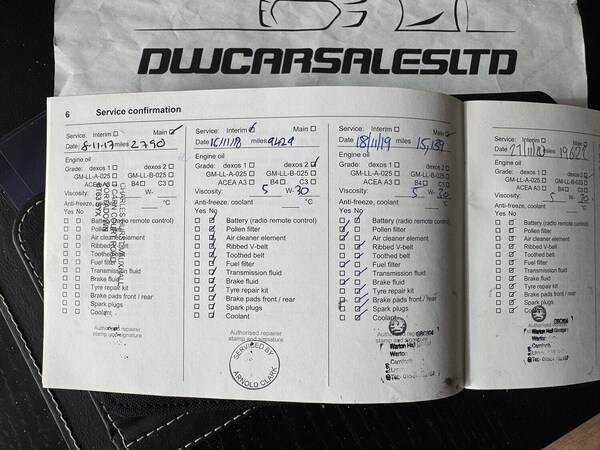 DWCARSALESLTD
6 Service confirmation
Service: Interim Main
Date: 8-11-17 miles 2790
Engine oil
Grade: dexos 1 dexos 2
GM-LL-A-025 GM-LL-B-025
ACEA A3 B4 C3
Viscosity: W-
Anti-freeze, coolant °C
Yes No
Battery (radio remote control)
Pollen filter
Air cleaner element
Ribbed V-belt
Toothed belt
Fuel filter
Transmission fluid
Brake fluid
Tyre repair kit
Brake pads front / rear
Spark plugs
Coolant
Authorised repairer
stamp and signature
Service: Interim Main
Date: 16/11/18 miles 9429
Engine oil
Grade: dexos 1 dexos 2
GM-LL-A-025 GM-LL-B-025
ACEA A3 B4 C3
Viscosity: 5 W- 30
Anti-freeze, coolant °C
Yes No
Battery (radio remote control)
Pollen filter
Air cleaner element
Ribbed V-belt
Toothed belt
Fuel filter
Transmission fluid
Brake fluid
Tyre repair kit
Brake pads front / rear
Spark plugs
Coolant
Authorised repairer
stamp and signature
SERVICED BY
ARNOLD CLARK
Service: Interim Main
Date: 18/11/19 miles 15,189
Engine oil
Grade: dexos 1 dexos 2
GM-LL-A-025 GM-LL-B-025
ACEA A3 B4 C3
Viscosity: 5 W- 30
Anti-freeze, coolant °C
Yes No
Battery (radio remote control)
Pollen filter
Air cleaner element
Ribbed V-belt
Toothed belt
Fuel filter
Transmission fluid
Brake fluid
Tyre repair kit
Brake pads front / rear
Spark plugs
Coolant
Authorised repairer
stamp and signature
Warton
Service: Interim Main
Date: miles
Engine oil
Grade: dexos 1 dexos 2
GM-LL-A-025 GM-LL-B-025
ACEA A3 B4 C3
Viscosity: 5 W- 30
Anti-freeze, coolant °C
Yes No
Battery (radio remote control)
Pollen filter
Air cleaner element
Ribbed V-belt
Toothed belt
Fuel filter
Transmission fluid
Brake fluid
Tyre repair kit
Brake pads front / rear
Spark plugs
Warton
Carnforth